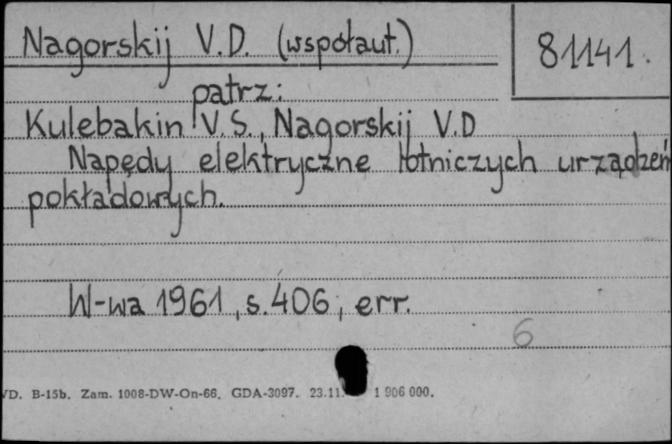 Nagorskij V.D. (współaut.)
81141.
patrz:
Kulebakin V.S., Nagorskij V.D
Napędy elektryczne lotniczych urządzeń
pokładowych.
W-wa 1961, s.406, err.
6
VD. B-15b. Zam. 1008-DW-On-66. GDA-3097. 23.11. 1 906 000.